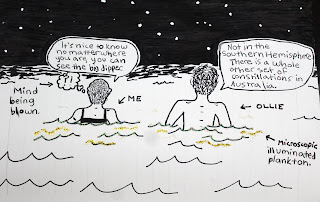 It's nice to know
no matter where
you are, you can
see the big dipper
Not in the
Southern Hemisphere
There is a whole
other set of
constillations in
Australia.
Mind
being
blown.
ME
OLLIE
Microscopic
illuminated
plankton.